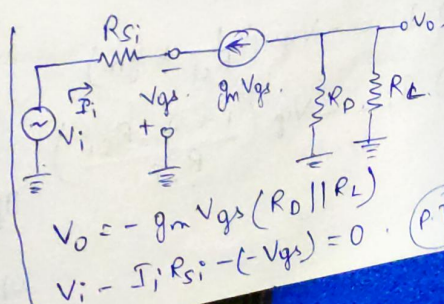 RSi
Vo
Ii
Vi
−
Vgs.
+
gmVgs.
RD
RL
Vo = - gm Vgs (RD || RL)
Vi - Ii RSi - (-Vgs) = 0.